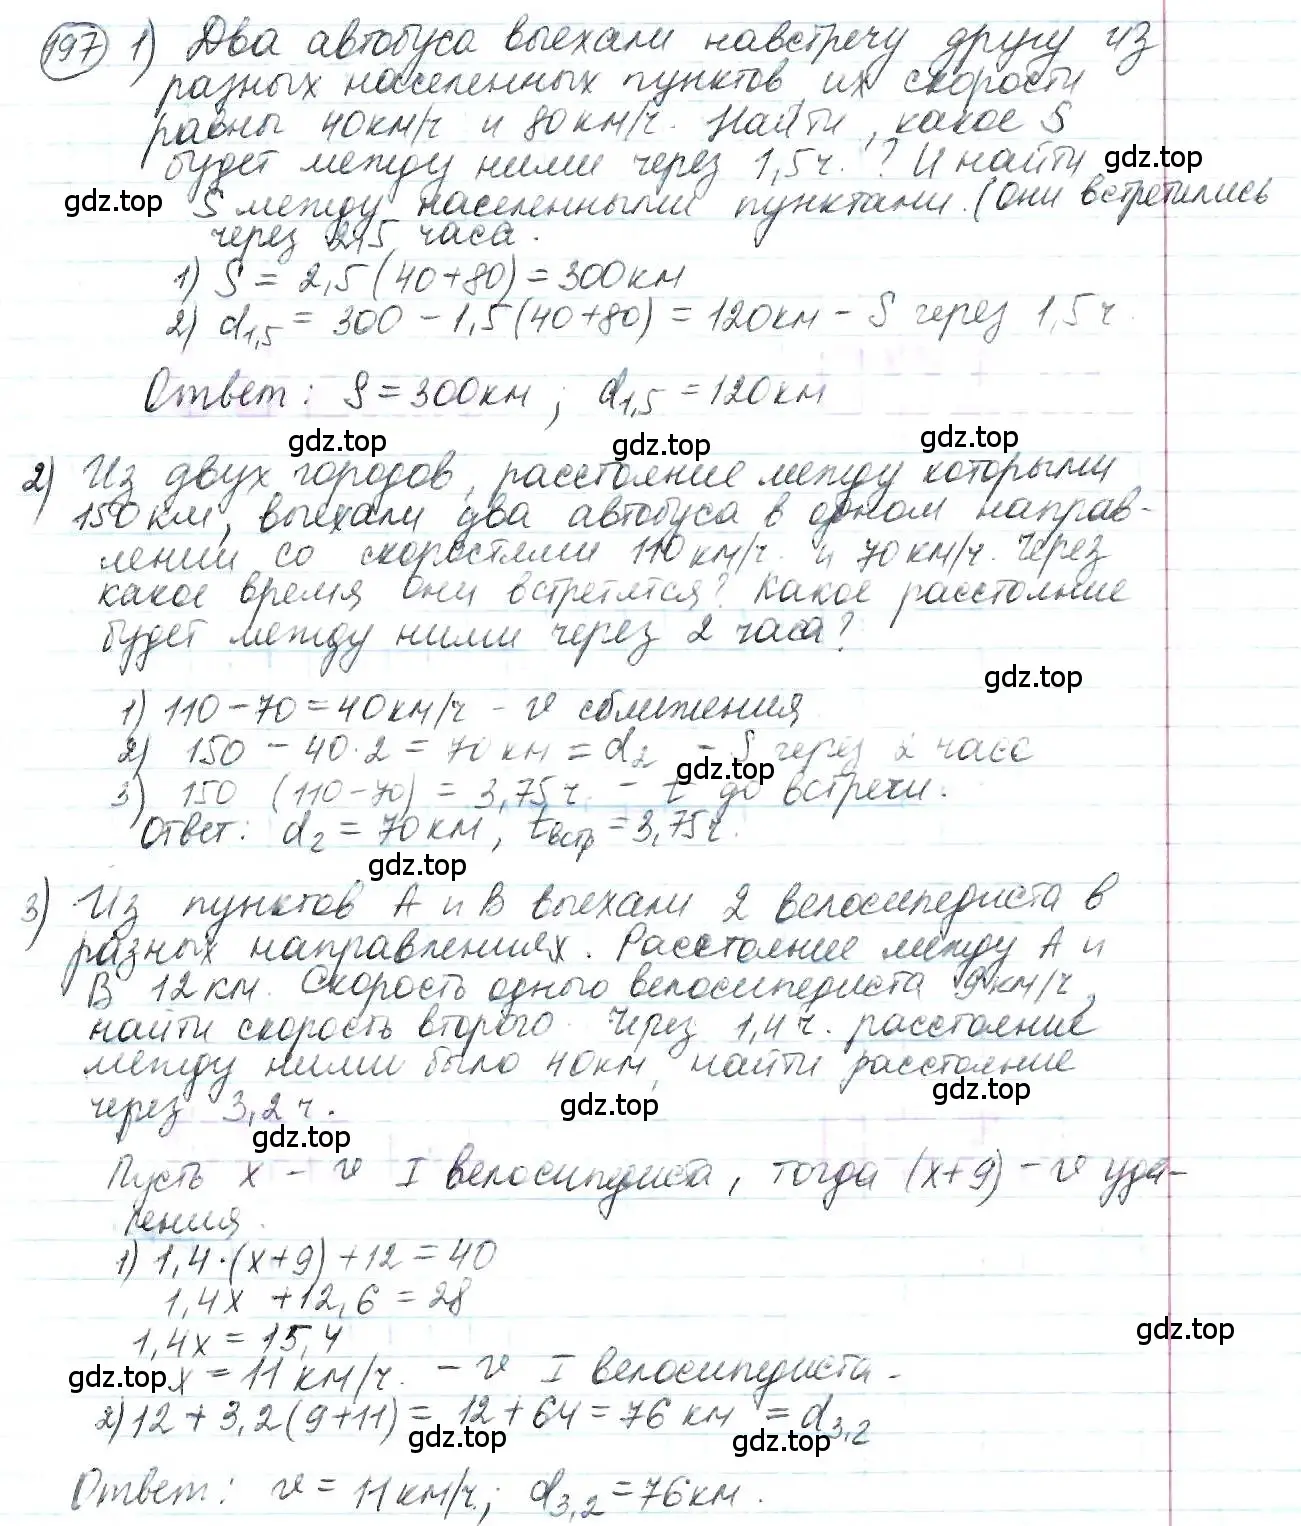 197) 1) Два автобуса выехали навстречу другу из
разных населенных пунктов, их скорости
равны 40км/ч и 80км/ч. Найти, какое S
будет между ними через 1,5ч.? И найти
gdz.top
gdz.top S между населенными пунктами. (Они встретились
через 2,5 часа.
1) S = 2,5(40+80) = 300км
2) d1,5 = 300 - 1,5(40+80) = 120км - S через 1,5ч.
Ответ: S = 300км; d1,5 = 120км
gdz.top gdz.top gdz.top
2) Из двух городов, расстояние между которыми
150км, выехали два автобуса в одном направ-
лении со скоростями 110км/ч. и 70км/ч. Через
какое время они встретятся? Какое расстояние
будет между ними через 2 часа?
gdz.top
1) 110-70=40км/ч - v сближения
2) 150 - 40·2 = 70км = d2 = S через 2 часа
gdz.top
3) 150 (110-70) = 3,75ч. - t до встречи.
Ответ: d2 = 70км, tвстр = 3,75ч.
gdz.top
3) Из пунктов А и В выехали 2 велосипедиста в
разных направлениях. Расстояние между А и
В 12км. Скорость одного велосипедиста 9км/ч,
найти скорость второго. Через 1,4ч. расстояние
между ними было 40км, найти расстояние
через 3,2ч.
gdz.top gdz.top gdz.top
Пусть x - v I велосипедиста, тогда (x+9) - v уда-
ления.
1) 1,4·(x+9)+12=40
1,4x +12,6 = 28
1,4x = 15,4
gdz.top
gdz.top x = 11км/ч. - v I велосипедиста.
2) 12+3,2(9+11) = 12+64=76км = d3,2
gdz.top gdz.top
Ответ: v = 11км/ч; d3,2 = 76км.